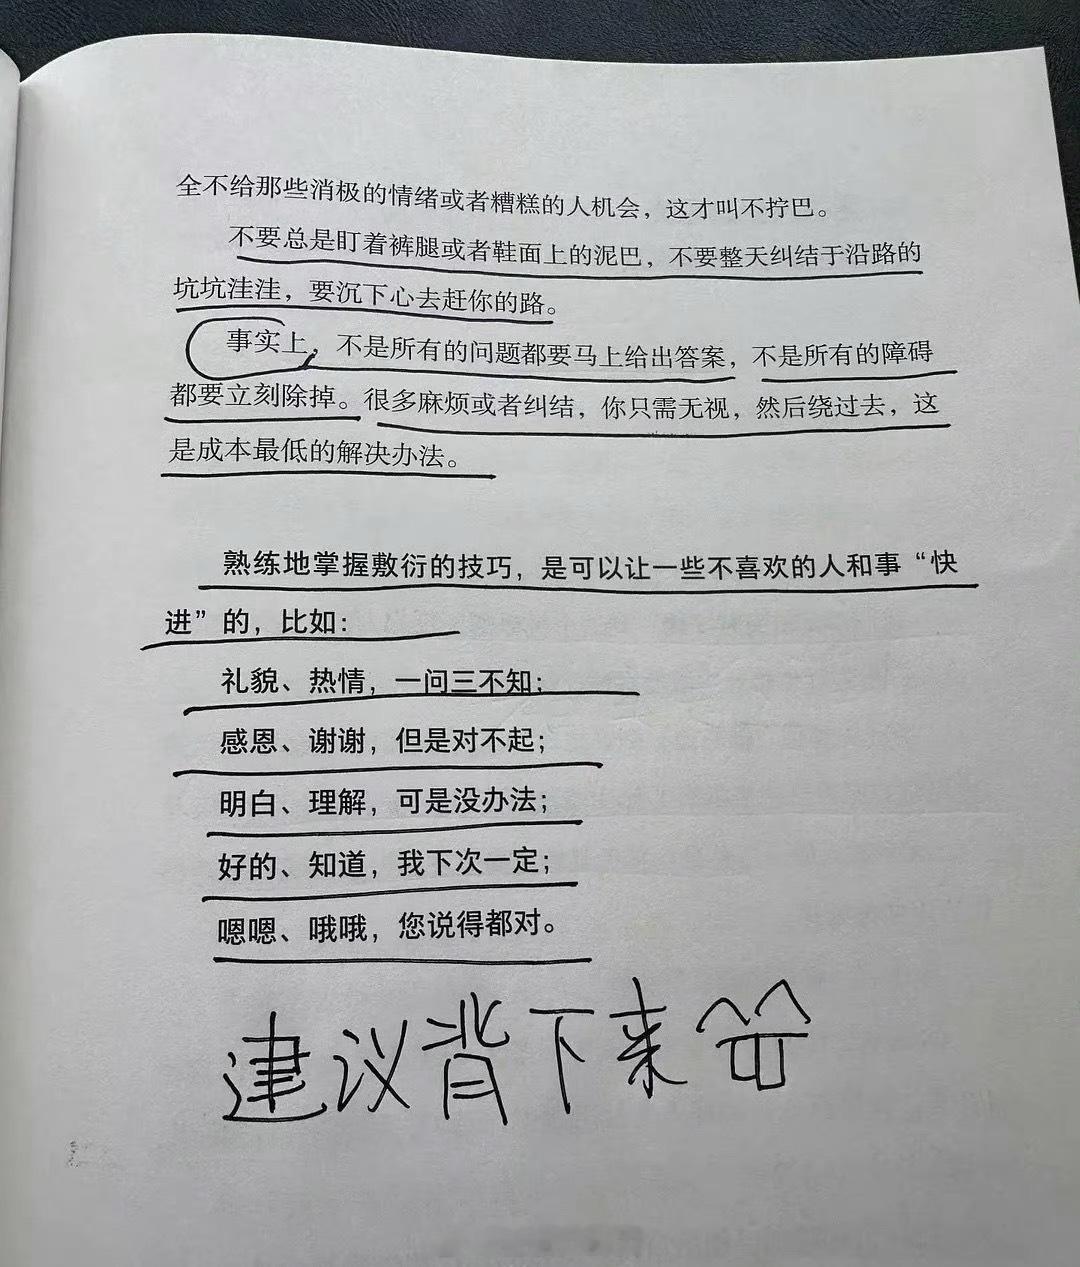 全不给那些消极的情绪或者糟糕的人机会，这才叫不拧巴。
不要总是盯着裤腿或者鞋面上的泥巴，不要整天纠结于沿路的
坑坑洼洼，要沉下心去赶你的路。
事实上，不是所有的问题都要马上给出答案，不是所有的障碍
都要立刻除掉。很多麻烦或者纠结，你只需无视，然后绕过去，这
是成本最低的解决办法。
熟练地掌握敷衍的技巧，是可以让一些不喜欢的人和事“快
进”的，比如：
礼貌、热情，一问三不知；
感恩、谢谢，但是对不起；
明白、理解，可是没办法；
好的、知道，我下次一定；
嗯嗯、哦哦，您说得都对。
建议背下来